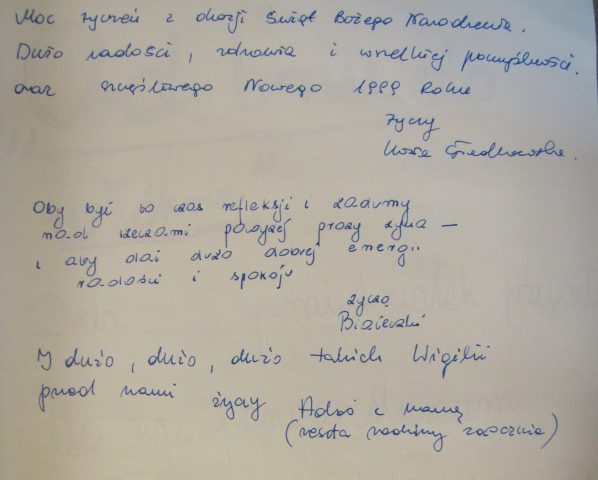 Moc życzeń z okazji Świąt Bożego Narodzenia.
Dużo radości, zdrowia i wszelkiej pomyślności.
oraz szczęśliwego Nowego 1999 Roku
życzy
Oby był to czas refleksji i zadumy
nad rzeczami powyżej prozy życia —
i aby dał dużo dobrej energii
radości i spokoju
życzą
I dużo, dużo, dużo takich Wigilii
przed nami życzy z mamą
(reszta rodziny zaocznie)